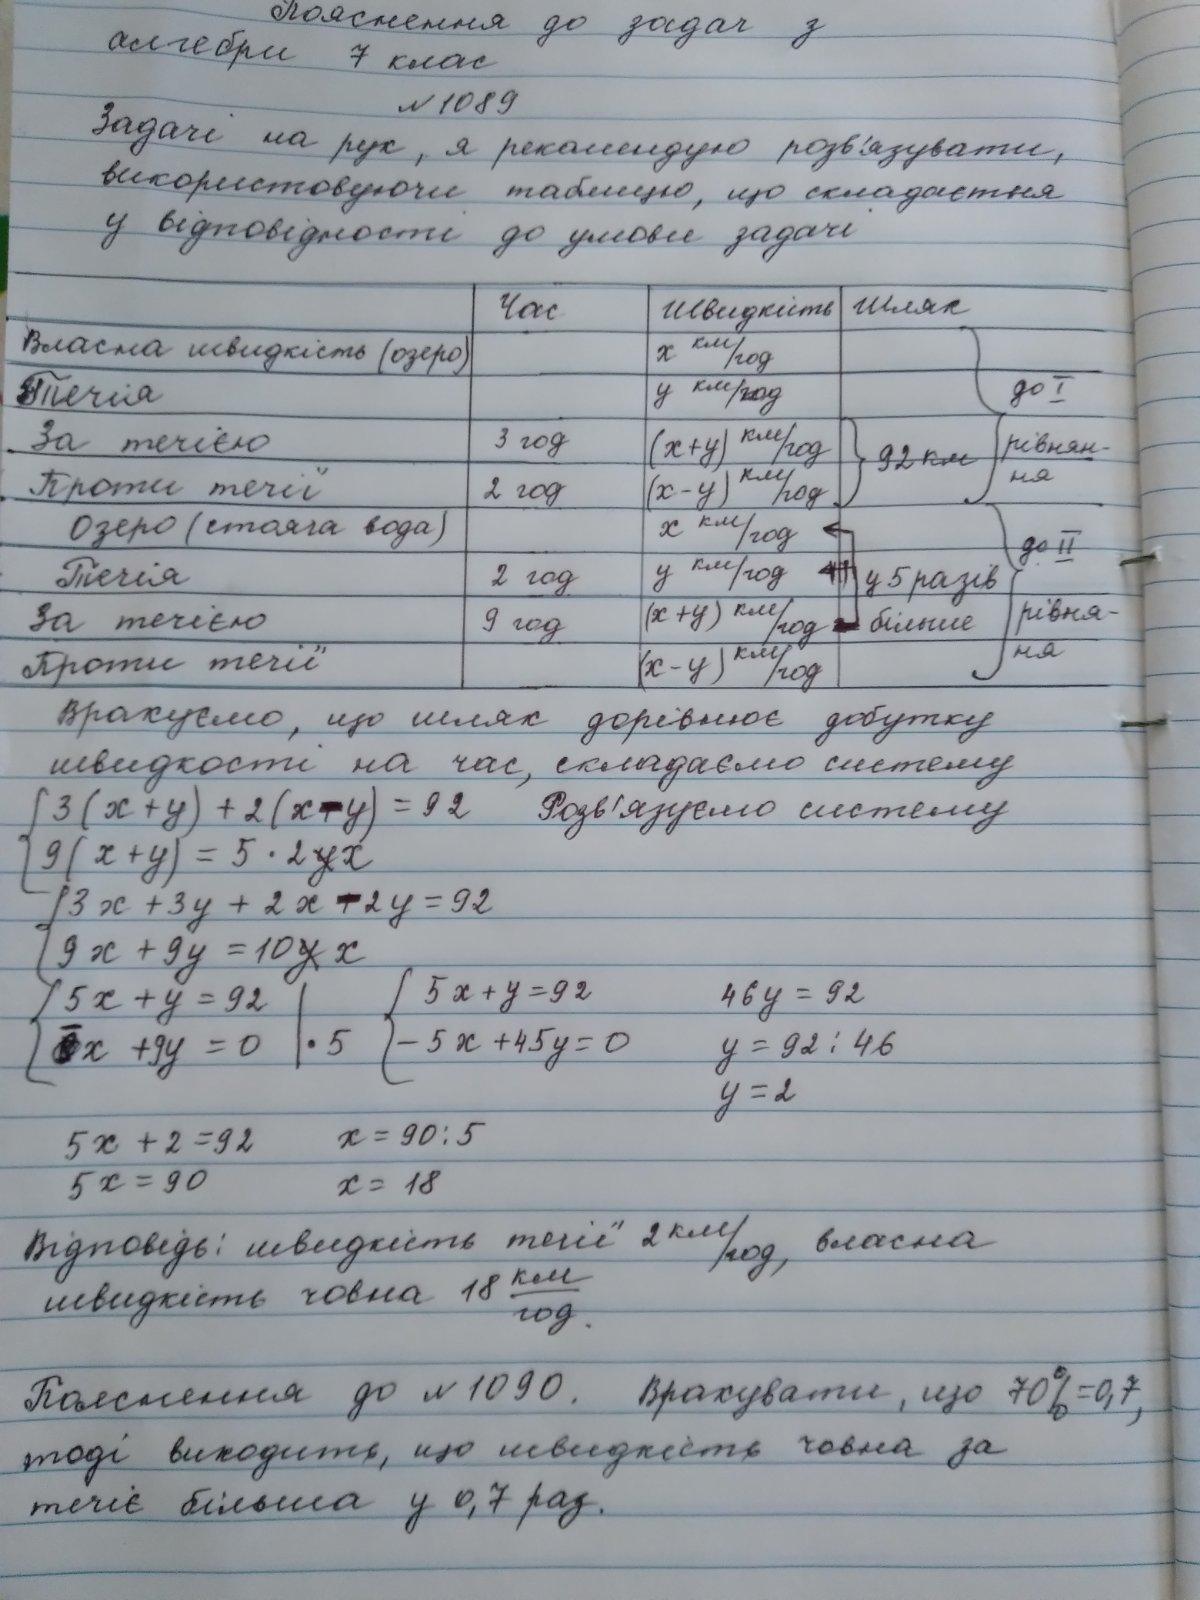 Пояснення до задач з
алгебри 7 клас
№1089
Задачі на рух, я рекомендую розв'язувати,
використовуючи таблицю, що складається
у відповідності до умови задачі
Час Швидкість Шлях
Власна швидкість (озеро) x км/год
Течія y км/год до I
За течією 3 год (x+y) км/год 92 км рівнян-
Проти течії 2 год (x-y) км/год ня
Озеро (стояча вода) x км/год до II
Течія 2 год y км/год у 5 разів
За течією 9 год (x+y) км/год більше рівня-
Проти течії (x-y) км/год ня
Врахуємо, що шлях дорівнює добутку
швидкості на час, складаємо систему
3(x+y)+2(x-y)=92 Розв'язуємо систему
9(x+y)=5·2x
3x+3y+2x-2y=92
9x+9y=10x
5x+y=92 5x+y=92 46y=92
-x+9y=0 |·5 -5x+45y=0 y=92:46
y=2
5x+2=92 x=90:5
5x=90 x=18
Відповідь: швидкість течії 2 км/год, власна
швидкість човна 18 км/год.
Пояснення до №1090. Врахувати, що 70%=0,7,
тоді виходить, що швидкість човна за
течіє більша у 0,7 раз.